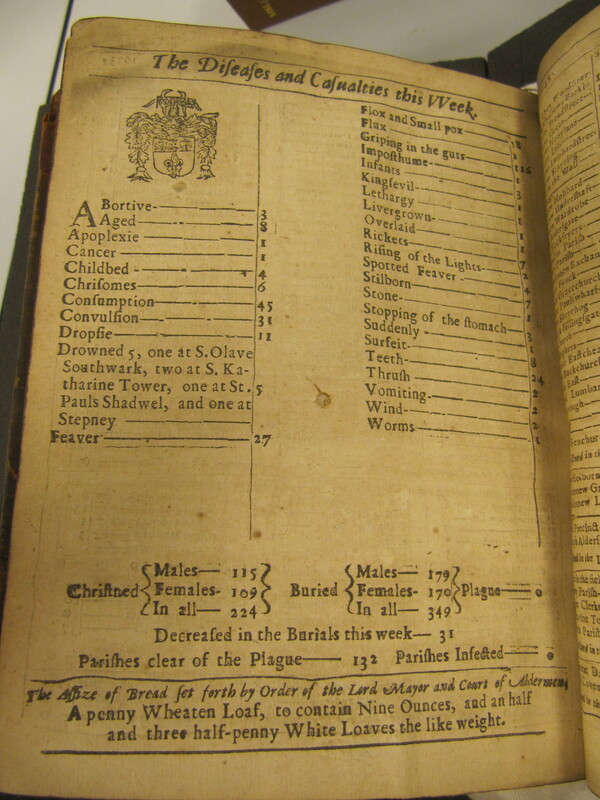 The Diſeaſes and Caſualties this VVeek.
ABortive- 3
Aged 8
Apoplexie 1
Cancer 1
Childbed - 4
Chriſomes 6
Conſumption 45
Convulſion 31
Dropſie 11
Drowned 5, one at S. Olave
Southwark, two at S. Ka-
tharine Tower, one at St. 5
Pauls Shadwel, and one at
Stepney
Feaver 27
Flox and Small pox 18
Flux 1
Griping in the guts 116
Impoſthume 1
Infants 3
Kingſevil 1
Lethargy 1
Livergrown 1
Overlaid 1
Rickets 7
Riſing of the Lights 2
Spotted Feaver 4
Stilborn 7
Stone 1
Stopping of the ſtomach 3
Suddenly 1
Surfeit 8
Teeth 24
Thruſh 2
Vomiting 2
Wind 2
Worms 1
Chriſtned
Males— 115
Females- 109
In all— 224
Buried
Males— 179
Females- 170
In all— 349
Plague— 0
Decreaſed in the Burials this week— 31
Pariſhes clear of the Plague— 132 Pariſhes Infected— 0
The Aſſize of Bread ſet forth by Order of the Lord Mayor and Court of Aldermen,
A penny Wheaten Loaf, to contain Nine Ounces, and an half
and three half-penny White Loaves the like weight.